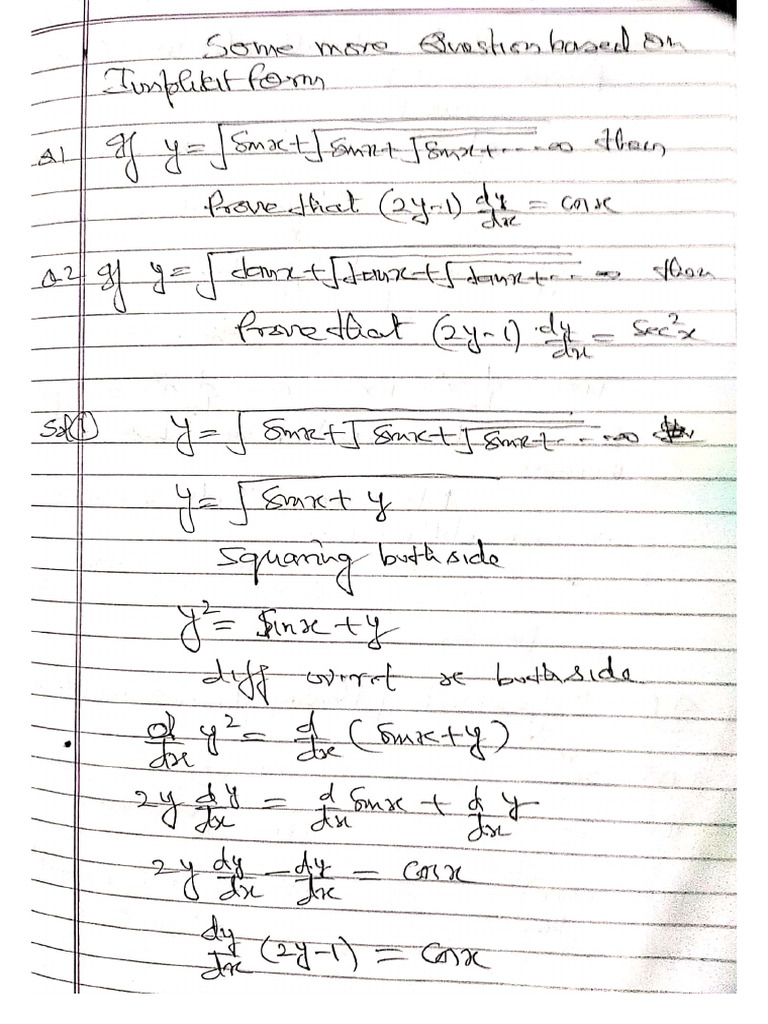 Some more Question based on
Implicit form
Q1 If y = √sinx + √sinx + √sinx + ..... ∞ then
Prove that (2y-1) dy/dx = cosx
Q2 If y = √tanx + √tanx + √tanx + ... ∞ then
Prove that (2y-1) . dy/dx = sec²x
Sol① y = √sinx + √sinx + √sinx + .. .. ∞
y = √sinx + y
Squaring both side
y² = Sinx + y
diff w.r.t x both side
d/dx y² = d/dx (sinx + y)
2y dy/dx = d/dx sinx + d/dx y
2y dy/dx - dy/dx = cosx
dy/dx (2y-1) = cosx